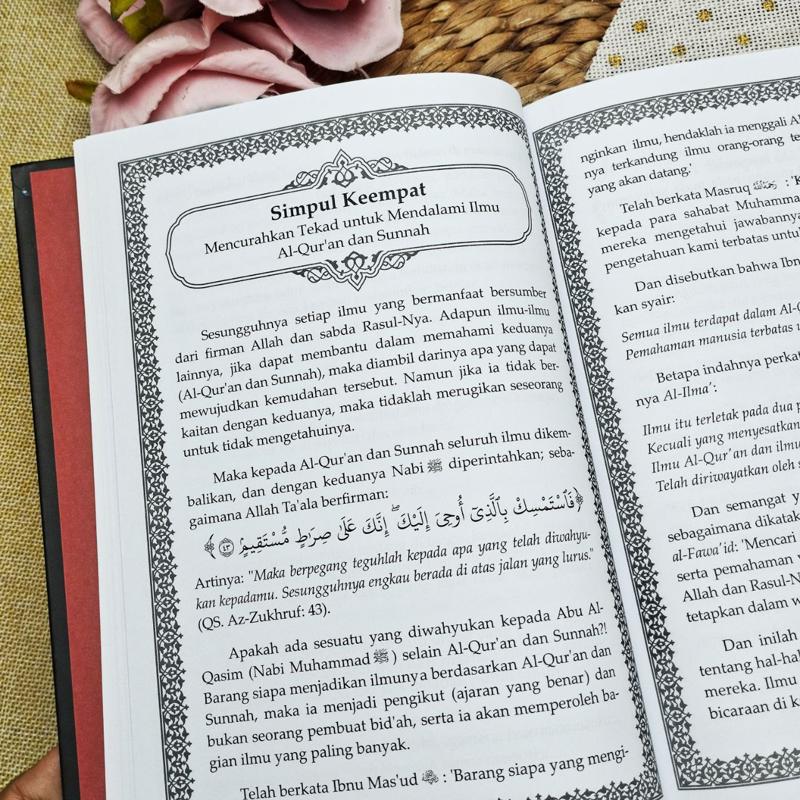 Simpul Keempat
Mencurahkan Tekad untuk Mendalami Ilmu
Al-Qur'an dan Sunnah
Sesungguhnya setiap ilmu yang bermanfaat bersumber
dari firman Allah dan sabda Rasul-Nya. Adapun ilmu-ilmu
lainnya, jika dapat membantu dalam memahami keduanya
(Al-Qur'an dan Sunnah), maka diambil darinya apa yang dapat
mewujudkan kemudahan tersebut. Namun jika ia tidak ber-
kaitan dengan keduanya, maka tidaklah merugikan seseorang
untuk tidak mengetahuinya.
Maka kepada Al-Qur'an dan Sunnah seluruh ilmu dikem-
balikan, dan dengan keduanya Nabi ﷺ diperintahkan; seba-
gaimana Allah Ta'ala berfirman:
﴿فَٱسْتَمْسِكْ بِٱلَّذِىٓ أُوحِىَ إِلَيْكَ ۖ إِنَّكَ عَلَىٰ صِرَٰطٍ مُّسْتَقِيمٍ ٤٣﴾
Artinya: "Maka berpegang teguhlah kepada apa yang telah diwahyu-
kan kepadamu. Sesungguhnya engkau berada di atas jalan yang lurus."
(QS. Az-Zukhruf: 43).
Apakah ada sesuatu yang diwahyukan kepada Abu Al-
Qasim (Nabi Muhammad ﷺ) selain Al-Qur'an dan Sunnah?!
Barang siapa menjadikan ilmunya berdasarkan Al-Qur'an dan
Sunnah, maka ia menjadi pengikut (ajaran yang benar) dan
bukan seorang pembuat bid'ah, serta ia akan memperoleh ba-
gian ilmu yang paling banyak.
Telah berkata Ibnu Mas'ud : 'Barang siapa yang mengi-
nginkan ilmu, hendaklah ia menggali A
nya terkandung ilmu orang-orang te
yang akan datang.'
Telah berkata Masruq : 'K
kepada para sahabat Muhamma
mereka mengetahui jawabanny
pengetahuan kami terbatas untu
Dan disebutkan bahwa Ibn
kan syair:
Semua ilmu terdapat dalam Al-Q
Pemahaman manusia terbatas
Betapa indahnya perka
nya Al-Ilma':
Ilmu itu terletak pada dua p
Kecuali yang menyesatkan
Ilmu Al-Qur'an dan ilmu
Telah diriwayatkan oleh s
Dan semangat y
sebagaimana dikatak
al-Fawa'id: 'Mencari
serta pemahaman
Allah dan Rasul-N
tetapkan dalam w
Dan inilah
tentang hal-hal
mereka. Ilmu
bicaraan di k